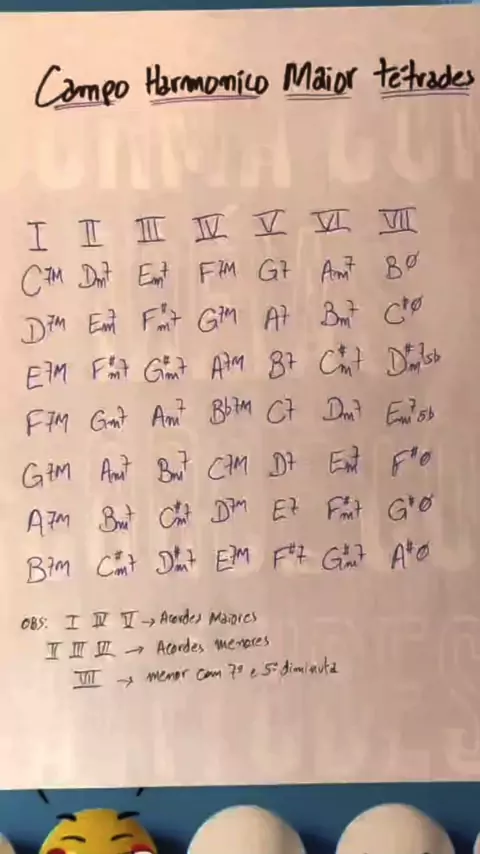 Campo Harmonico Maior tétrades
I II III IV V VI VII
C7M Dm7 Em7 F7M G7 Am7 Bø
D7M Em7 F#m7 G7M A7 Bm7 C#ø
E7M F#m7 G#m7 A7M B7 C#m7 D#m7 5b
F7M Gm7 Am7 Bb7M C7 Dm7 Em7 5b
G7M Am7 Bm7 C7M D7 Em7 F#ø
A7M Bm7 C#m7 D7M E7 F#m7 G#ø
B7M C#m7 D#m7 E7M F#7 G#m7 A#ø
OBS: I IV V → Acordes Maiores
II III VI → Acordes menores
VII → menor com 7ª e 5ª diminuta